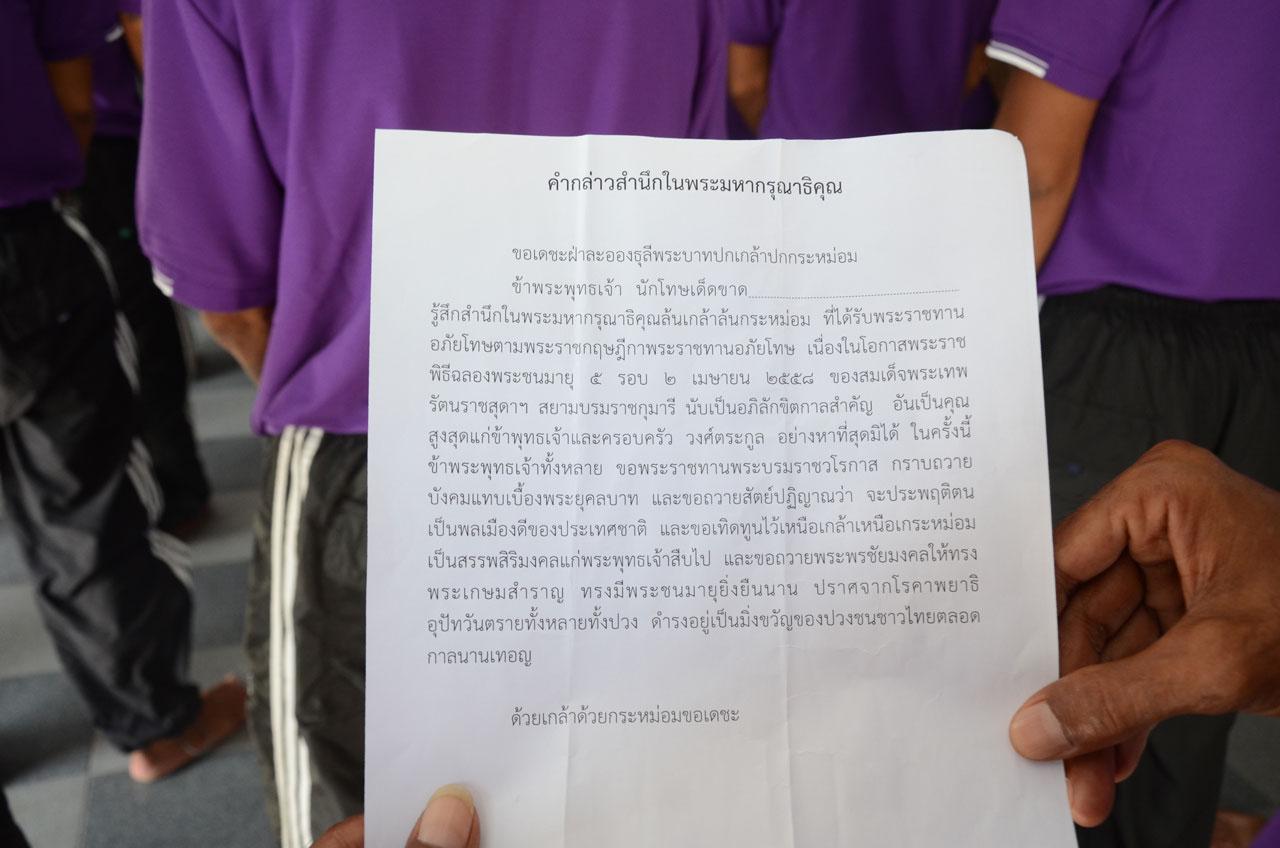 คำกล่าวสำนึกในพระมหากรุณาธิคุณ
ขอเดชะฝ่าละอองธุลีพระบาทปกเกล้าปกกระหม่อม
ข้าพระพุทธเจ้า นักโทษเด็ดขาด
รู้สึกสำนึกในพระมหากรุณาธิคุณล้นเกล้าล้นกระหม่อม ที่ได้รับพระราชทาน
อภัยโทษตามพระราชกฤษฎีกาพระราชทานอภัยโทษ เนื่องในโอกาสพระราช
พิธีฉลองพระชนมายุ ๕ รอบ ๒ เมษายน ๒๕๕๘ ของสมเด็จพระเทพ
รัตนราชสุดาฯ สยามบรมราชกุมารี นับเป็นอภิลักขิตกาลสำคัญ อันเป็นคุณ
สูงสุดแก่ข้าพุทธเจ้าและครอบครัว วงศ์ตระกูล อย่างหาที่สุดมิได้ ในครั้งนี้
ข้าพระพุทธเจ้าทั้งหลาย ขอพระราชทานพระบรมราชวโรกาส กราบถวาย
บังคมแทบเบื้องพระยุคลบาท และขอถวายสัตย์ปฏิญาณว่า จะประพฤติตน
เป็นพลเมืองดีของประเทศชาติ และขอเทิดทูนไว้เหนือเกล้าเหนือเกระหม่อม
เป็นสรรพสิริมงคลแก่พระพุทธเจ้าสืบไป และขอถวายพระพรชัยมงคลให้ทรง
พระเกษมสำราญ ทรงมีพระชนมายุยิ่งยืนนาน ปราศจากโรคาพยาธิ
อุปัทวันตรายทั้งหลายทั้งปวง ดำรงอยู่เป็นมิ่งขวัญของปวงชนชาวไทยตลอด
กาลนานเทอญ
ด้วยเกล้าด้วยกระหม่อมขอเดชะ